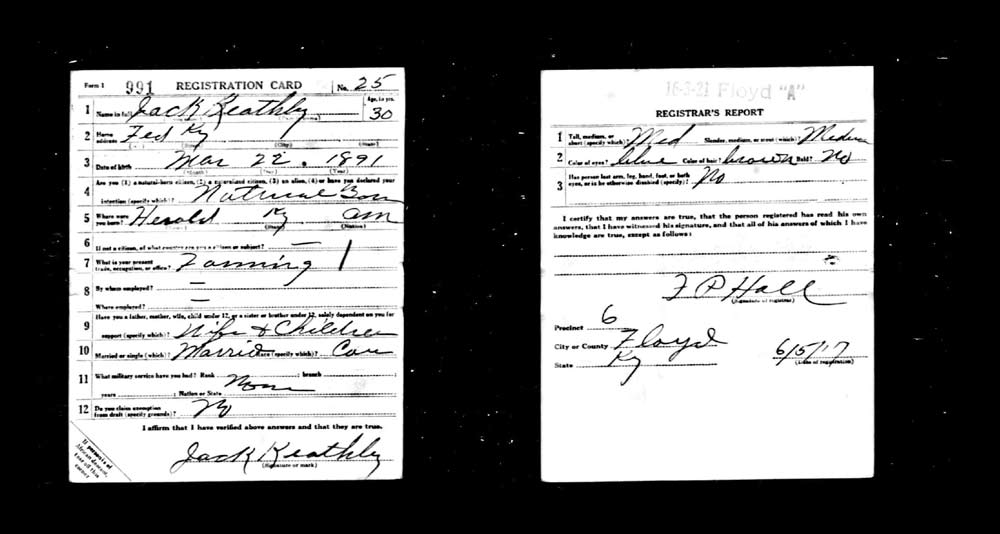 Form 1 991 REGISTRATION CARD No. 25
1 Name in full Jack Keathley Age, in yrs. 30
2 Home address Fed Ky
3 Date of birth Mar 22. 1891
(Month) (Day) (Year)
4 Are you (1) a natural-born citizen, (2) a naturalized citizen, (3) an alien, (4) or have you declared your
intention (specify which)? Natural Born
5 Where were you born? Herold Ky Am
(State) (Nation)
6 If not a citizen, of what country are you a citizen or subject? —
7 What is your present trade, occupation, or office? Farming
8 By whom employed? —
Where employed? —
9 Have you a father, mother, wife, child under 12, or a sister or brother under 12, solely dependent on you for
support (specify which)? Wife & Children
10 Married or single (which)? Married Race (specify which)? Cau
11 What military service have you had? Rank None ; branch ;
years ; Nation or State
12 Do you claim exemption from draft (specify grounds)? No
I affirm that I have verified above answers and that they are true.
Jack Keathley
(Signature or mark)
If person is of
African descent,
tear off this
corner
16-3-21 Floyd "A"
REGISTRAR'S REPORT
1 Tall, medium, or short (specify which)? Med Slender, medium, or stout (which)? Medium
2 Color of eyes? blue Color of hair? brown Bald? No
3 Has person lost arm, leg, hand, foot, or both
eyes, or is he otherwise disabled (specify)? No
I certify that my answers are true, that the person registered has read his own
answers, that I have witnessed his signature, and that all of his answers of which I have
knowledge are true, except as follows:
F P Hall
(Signature of registrar)
Precinct 6
City or County Floyd
State Ky 6/5/17
(Date of registration)